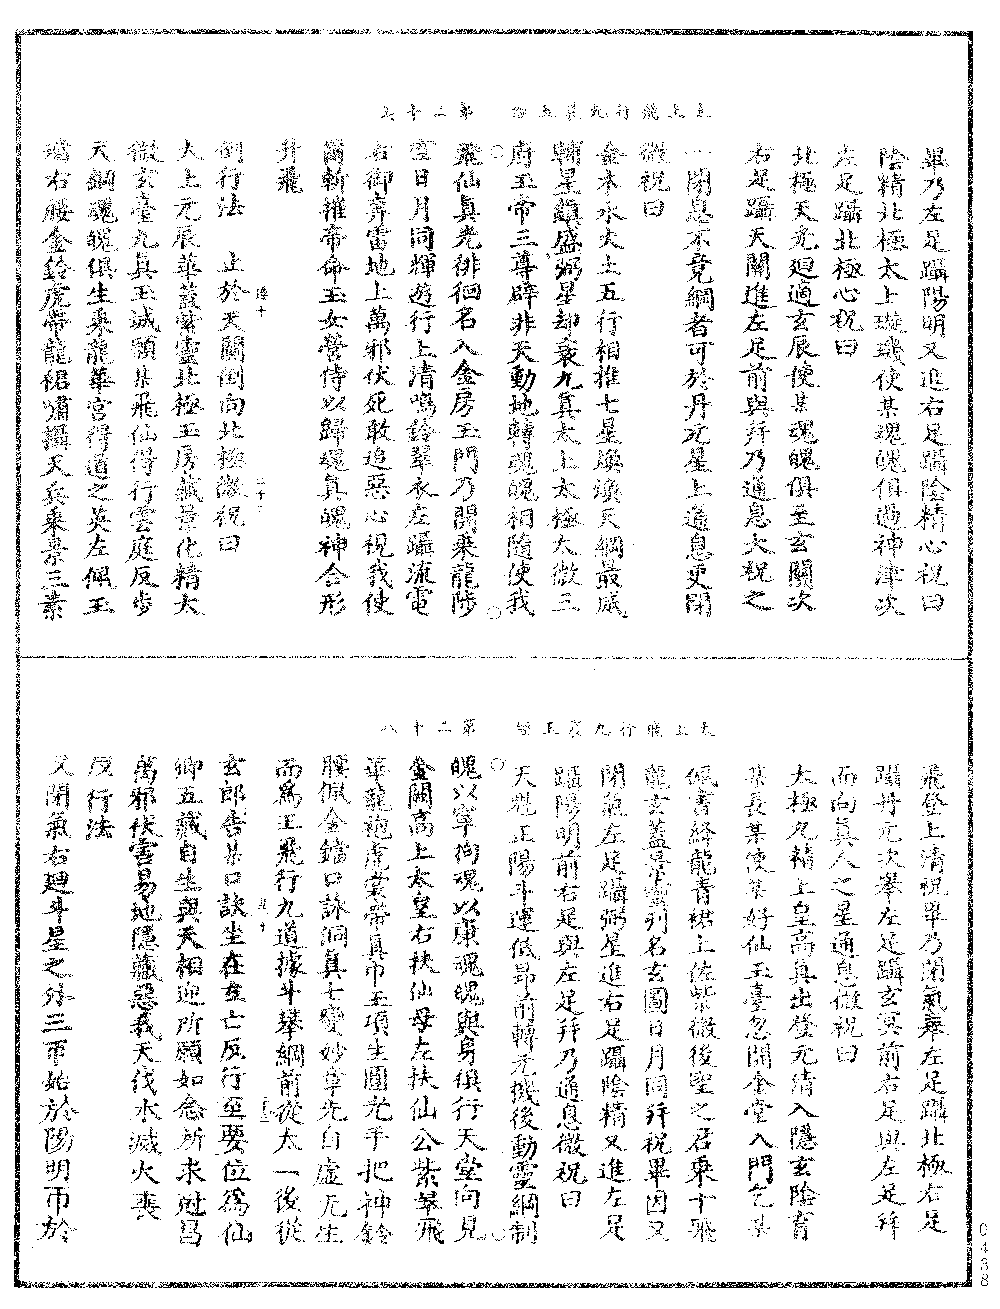 太上飛行九晨玉經　第二十七
畢乃左足躡陽明又進右足躡陰精心祝曰
陰精北極太上璇璣使某魂魄俱過神津次
左足躡北極心祝曰
北極天元迴適玄辰使某魂魄俱至玄關次
右足躡天關進左足前與并乃通息大祝之
一閉息不竟綱者可於丹元星上通息更閉
微祝曰
金木水火土五行相推七星煥煥天綱最威
輔星鎮盛弼星却衰九真太上太極太微三
府玉帝三尊辟非天動地轉魂魄相隨使我
飛仙真光徘徊名入金房玉門乃開乘龍陟
空日月同輝遊行上清鳴鈴翠衣左躡流電
右御奔雷地上萬邪伏死敢追惡心視我使
爾斬摧帝命玉女營侍以歸魂真魄神合形
升飛
倒行法　止於天關倒向北極微祝曰
太上元辰華蓋縈靈北極玉房藏景化精太
微玄臺九真玉誠願某飛仙得行雲庭反步
天綱魂魄俱生乘龍華宮得道之英左佩玉
璫右腰金鈴虎帶龍裙嘯攝天兵乘景三素
太上飛行九晨玉經　第二十八
飛登上清祝畢乃閉氣舉左足躡北極右足
躡丹元次舉左足躡玄冥前右足與左足并
而向真人之星通息微祝曰
太極九精上皇高真出登元清入隱玄陰育
某長某使某好仙玉臺忽開金堂入門乞某
佩書絳龍青裙上佐紫微後聖之君乘十飛
龍玄蓋景雲列名玄圖日月同并祝畢因又
閉氣左足躡弼星進右足躡陰精又進左足
躡陽明前右足與左足并乃通息微祝曰
天魁正陽斗運低昂前轉无機後動靈綱制
魄以寧拘魂以康魂魄與身俱行天堂向見
金闕高上太皇右扶仙母左扶仙公紫翠飛
華龍袍虎裳帶真巾玉項生圓光手把神鈴
腰佩金鐺口詠洞真七變妙章先自虛无生
而為王飛行九道據斗攀綱前從太一後從
玄郎告某口訣坐在立亡反行至要位為仙
卿五藏自生與天相迎所願如念所求尅昌
萬邪伏害易地隱藏惡我天伐水滅火喪
反行法
又閉氣右廻斗星之外三帀始於陽明帀於
0438